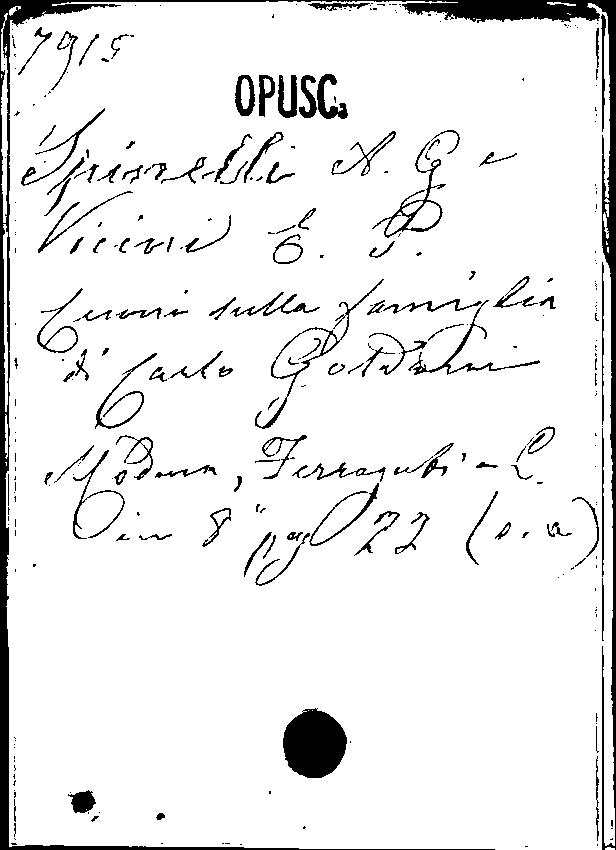 7915
OPUSC.
Spinelli A. G. e
Vicini E. P.
Cenni sulla famiglia
di Carlo Goldoni
Modena, Ferraguti e C.
in 8° pag 22 (s. a)